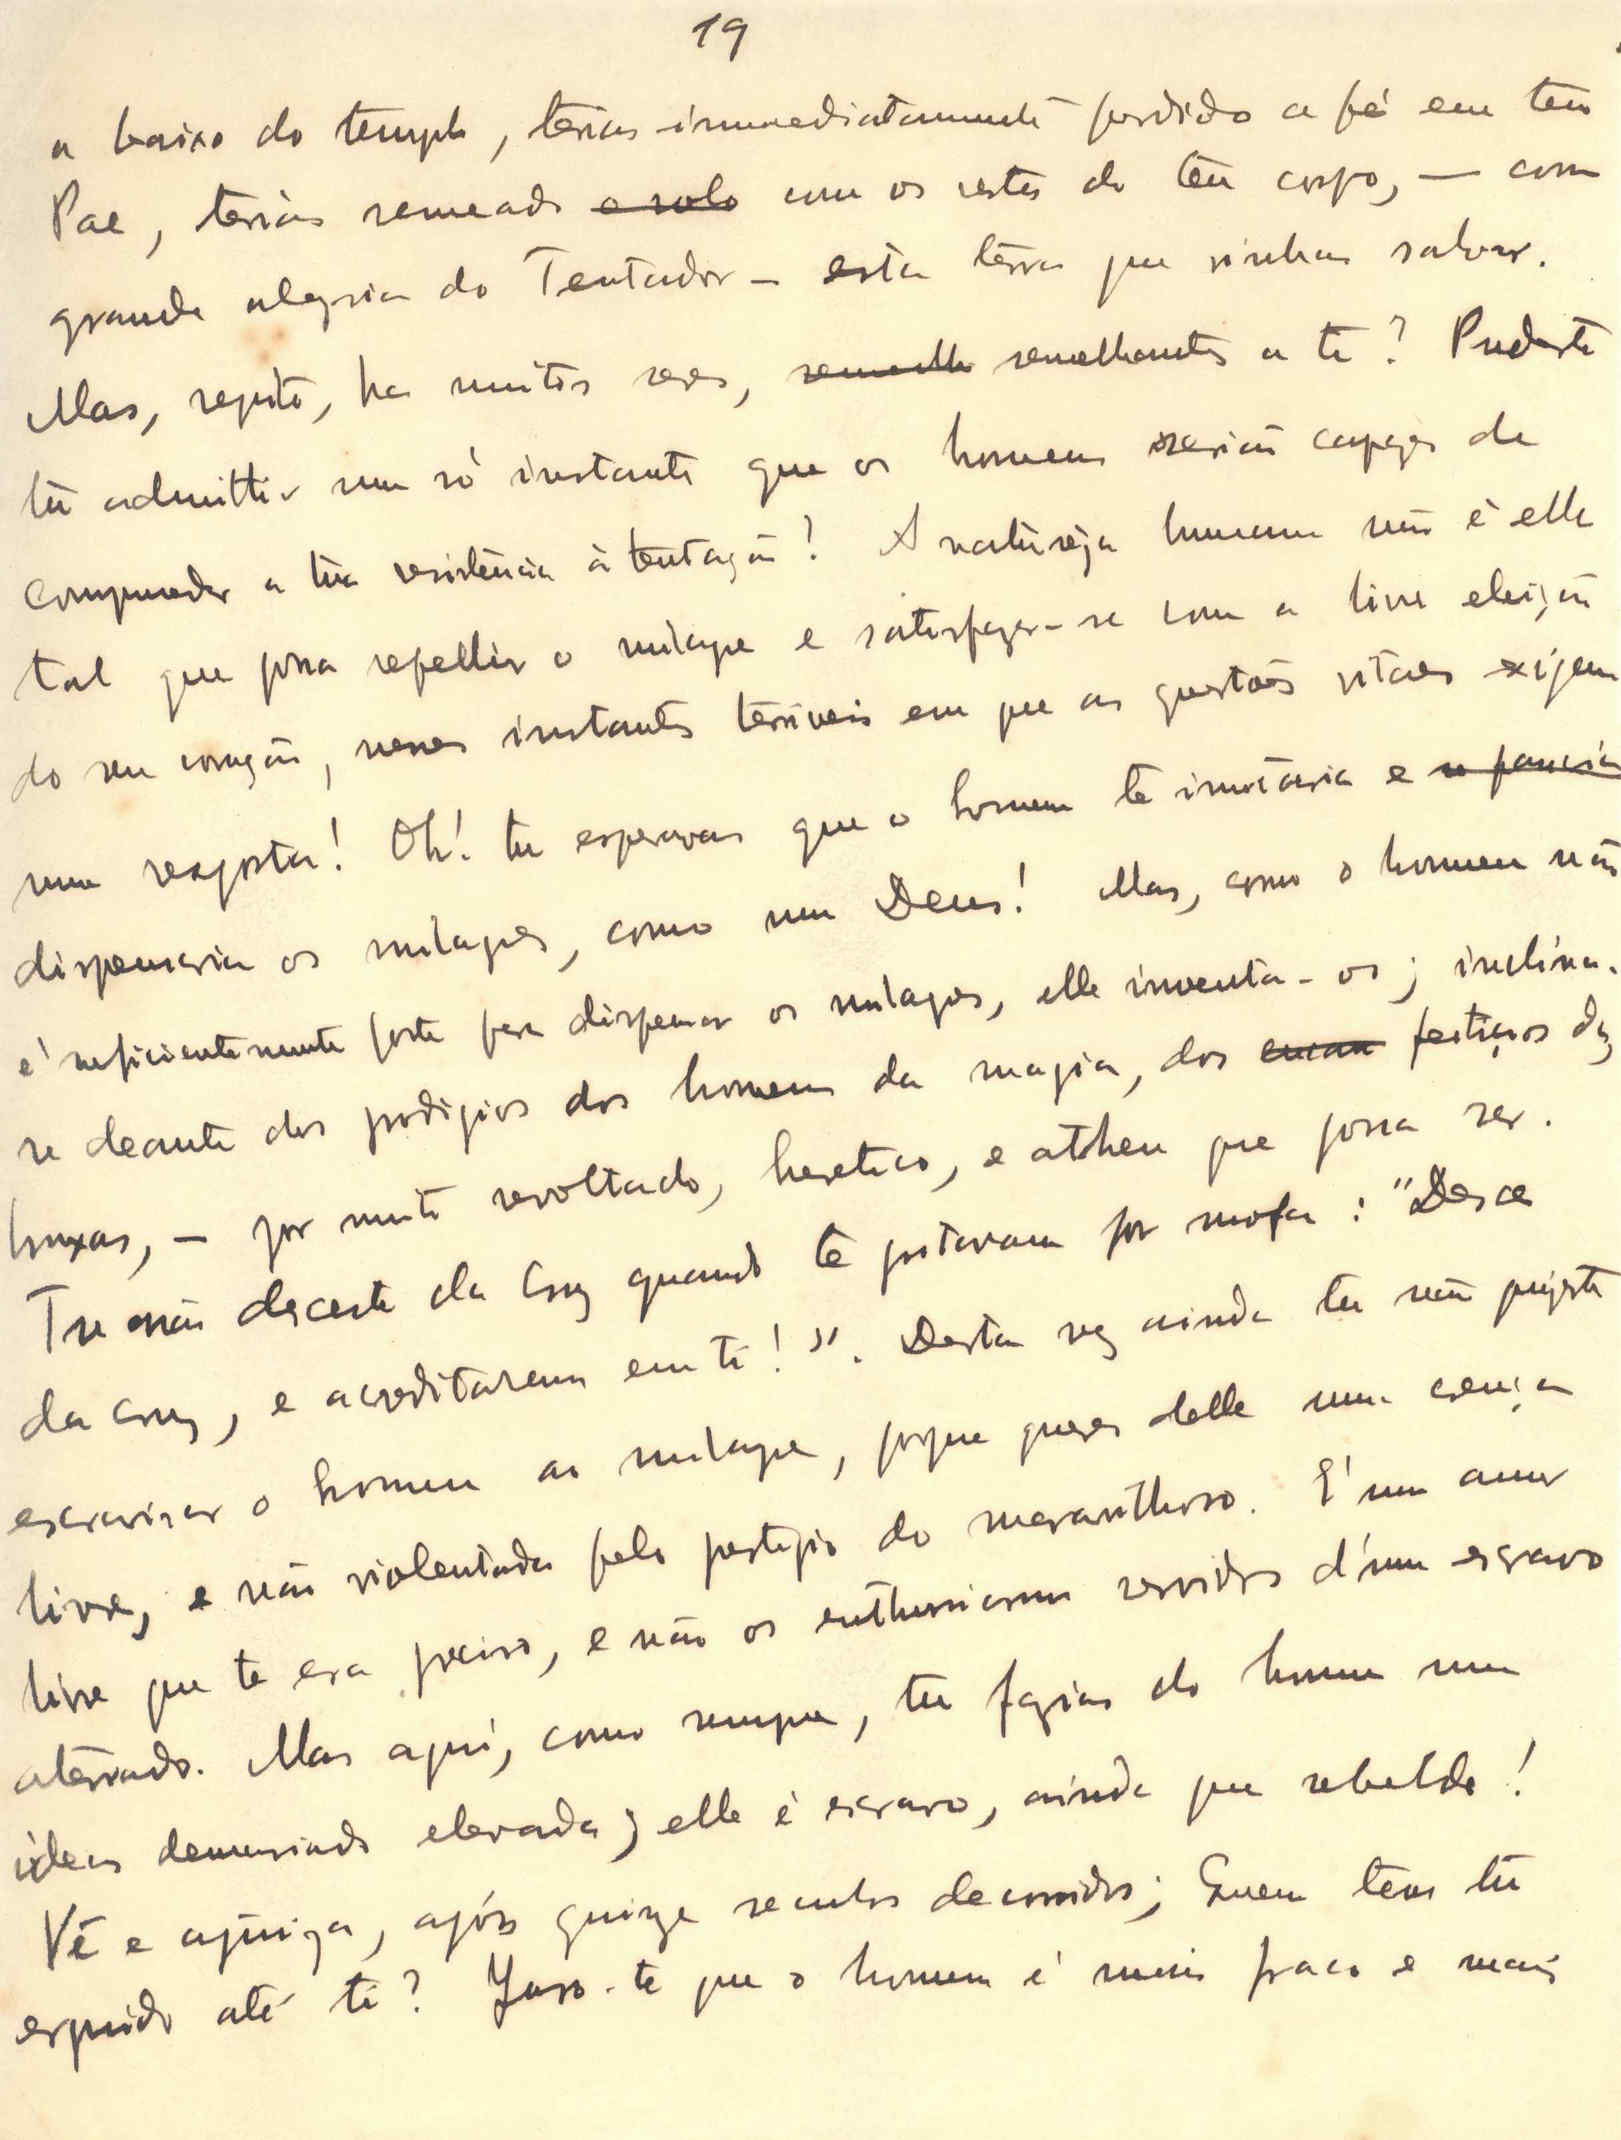 19
a baixo do templo, terias immediatamente perdido a fé em teu
Pae, terias semeado o solo com os restos do teu corpo, — com
grande alegria do Tentador — esta terra que vinhas salvar.
Mas, repito, ha muitos seres, semelh semelhantes a ti? Pudeste
tu admittir um só instante que os homens seriam capazes de
comprehender a tua resistencia á tentação? A natureza humana não é ella
tal que possa repellir o milagre e satisfazer-se com a livre eleição
do seu coração, nesses instantes terriveis em que as questões vitaes exigem
uma resposta! Oh! tu esperavas que o homem te imitaria e
dispensaria os milagres, como um Deus! Mas, como o homem não
é suficientemente forte para dispensar os milagres, elle inventa-os; inclina-
se deante dos prodigios dos homens da magia, dos encan feitiços das
bruxas, — por muito revoltado, heretico, e atheu que possa ser.
Tu não desceste da Cruz quando te gritavam por mofa: "Desce
da cruz, e acreditarem em ti!". Desta vez ainda tu não quizeste
escravisar o homem ao milagre, porque queres delle uma crença
livre, e não violentada pelo prestigio do maravilhoso. É um amor
livre que te era preciso, e não os enthusiasmos servidos d'um escravo
aterrado. Mas aqui, como sempre, tu fazias do homem uma
ideia demasiado elevada; elle é escravo, ainda que rebelde!
Vê e ajuiza, após quinze seculos decorridos; Quem tens tu
erguido até ti? Juro-te que o homem é mais fraco e mais